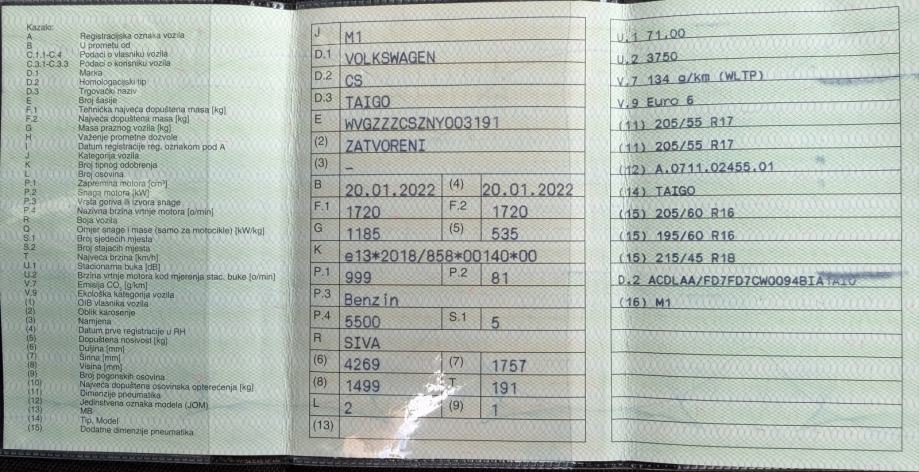 Kazalo:
A Registracijska oznaka vozila
B U prometu od
C.1.1-C.4 Podaci o vlasniku vozila
C.3.1-C.3.3 Podaci o korisniku vozila
D.1 Marka
D.2 Homologacijski tip
D.3 Trgovački naziv
E Broj šasije
F.1 Tehnička najveća dopuštena masa [kg]
F.2 Najveća dopuštena masa [kg]
G Masa praznog vozila [kg]
H Važenje prometne dozvole
I Datum registracije reg. oznakom pod A
J Kategorija vozila
K Broj tipnog odobrenja
L Broj osovina
P.1 Zapremina motora [cm³]
P.2 Snaga motora [kW]
P.3 Vrsta goriva ili izvora snage
P.4 Nazivna brzina vrtnje motora [o/min]
R Boja vozila
Q Omjer snage i mase (samo za motocikle) [kW/kg]
S.1 Broj sjedećih mjesta
S.2 Broj stajaćih mjesta
T Najveća brzina [km/h]
U.1 Stacionarna buka [dB]
U.2 Brzina vrtnje motora kod mjerenja stac. buke [o/min]
V.7 Emisija CO₂ [g/km]
V.9 Ekološka kategorija vozila
(1) OIB vlasnika vozila
(2) Oblik karoserije
(3) Namjena
(4) Datum prve registracije u RH
(5) Dopuštena nosivost [kg]
(6) Duljina [mm]
(7) Širina [mm]
(8) Visina [mm]
(9) Broj pogonskih osovina
(10) Najveća dopuštena osovinska opterećenja [kg]
(11) Dimenzije pneumatika
(12) Jedinstvena oznaka modela (JOM)
(13) MB
(14) Tip, Model
(15) Dodatne dimenzije pneumatika
J M1
D.1 VOLKSWAGEN
D.2 CS
D.3 TAIGO
E WVGZZZCSZNY003191
(2) ZATVORENI
(3) –
B 20.01.2022 (4) 20.01.2022
F.1 1720 F.2 1720
G 1185 (5) 535
K e13*2018/858*00140*00
P.1 999 P.2 81
P.3 Benzin
P.4 5500 S.1 5
R SIVA
(6) 4269 (7) 1757
(8) 1499 T 191
L 2 (9) 1
(13)
U.1 71.00
U.2 3750
V.7 134 g/km (WLTP)
V.9 Euro 6
(11) 205/55 R17
(11) 205/55 R17
(12) A.0711.02455.01
(14) TAIGO
(15) 205/60 R16
(15) 195/60 R16
(15) 215/45 R18
D.2 ACDLAA/FD7FD7CW0094BIA
(16) M1